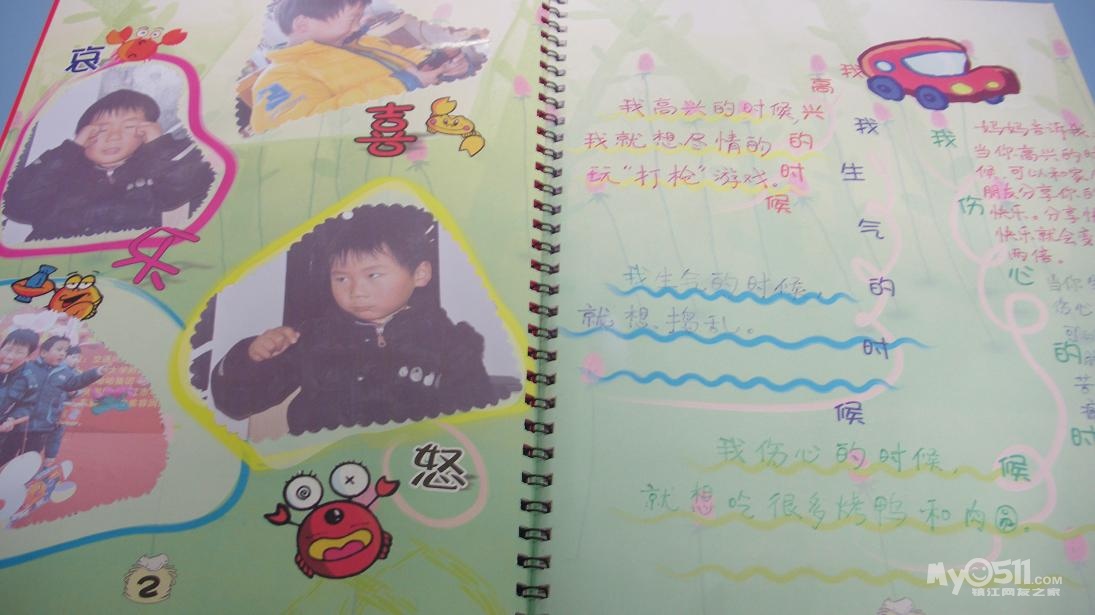 哀
喜
乐
怒
2
我高兴的时候
我高兴的时候,
我就想尽情的
玩“打枪”游戏。
我生气的时候
我生气的时候,
就想捣乱。
我伤心的时候
我伤心的时候,
就想吃很多烤鸭和肉圆。
妈妈告诉我
当你高兴的时
候,可以和家人
朋友分享你的
快乐。分享快
快乐就会变
两倍。
当你
伤心
My0511.COM
镇江网友之家